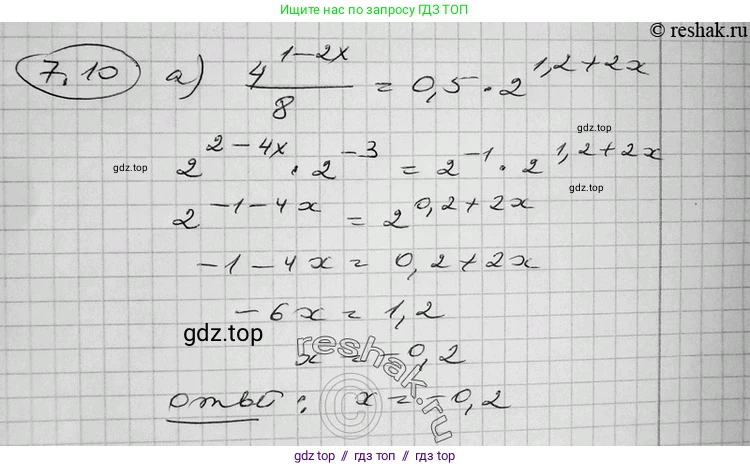 Ищите нас по запросу ГДЗ ТОП
© reshak.ru
7.10 а) 4^(1-2x)/8 = 0,5 · 2^(1,2+2x)
gdz.top
2^(2-4x) · 2^(-3) = 2^(-1) · 2^(1,2+2x)
gdz.top
gdz.top
2^(-1-4x) = 2^(0,2+2x)
-1-4x = 0,2+2x
-6x = 1,2
gdz.top
x = -0,2
reshak.ru
Ответ: x = -0,2
gdz.top // gdz.top // gdz.top